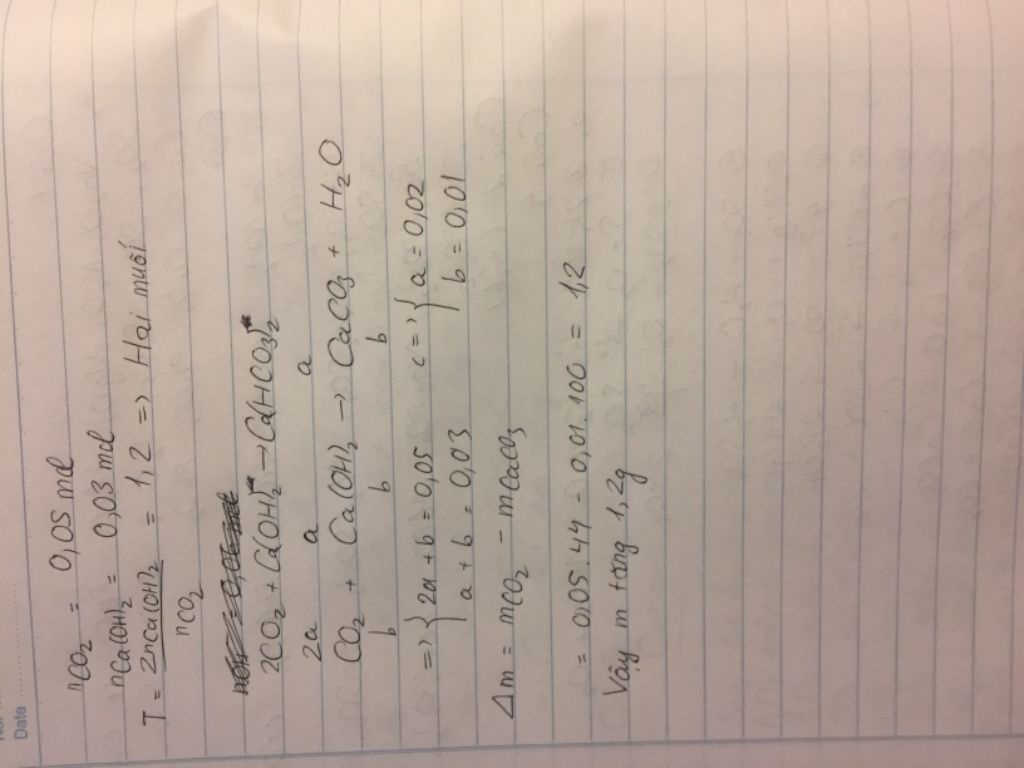 Date
nCO2 = 0,05 mol
nCa(OH)2 = 0,03 mol
T = 2nCa(OH)2 / nCO2 = 1,2 => Hai muối
2CO2 + Ca(OH)2 → Ca(HCO3)2
2a a a
CO2 + Ca(OH)2 → CaCO3 + H2O
b b b
=> { 2a + b = 0,05 <=> { a = 0,02
a + b = 0,03 b = 0,01
Δm = mCO2 - mCaCO3
= 0,05.44 - 0,01.100 = 1,2
Vậy m tăng 1,2g